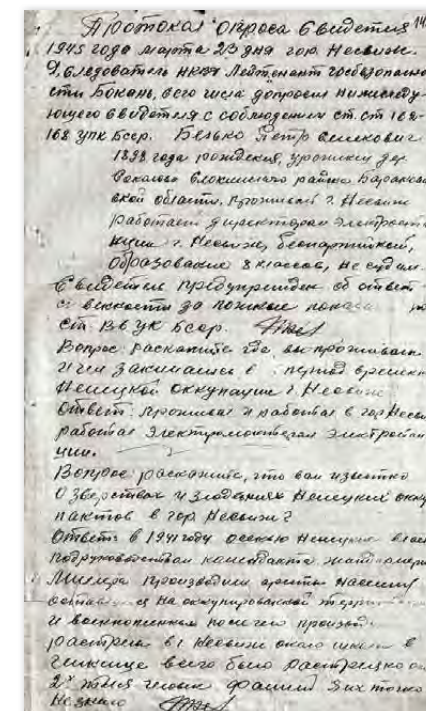 Протокол опроса Свидетеля 14
1945 года марта 23 дня гор. Несвиж.
Я, следователь НКВД Лейтенант госбезопасно
сти Бокань, сего числа допросил нижеследу-
ющего свидетеля с соблюдением ст. ст 162-
168 упк Бсср. Петр
1898 года рождения, уроженец дер.
района Баранов
ской области, г. Несвиж
работает директором электроста
нции г. Несвиж, беспартийный,
Образование 3 классов, не судим.
Свидетель предупрежден об ответ-
за ложные показа
ст. 136 ук Бсср.
Вопрос: раскажите где вы проживали
и чем занимались в период времен
Немецкой оккупации г. Несвиж
Ответ: проживал и работал в гор Несви
работал электромонтером электростан
ции.
Вопрос: раскажите, что вам известно
о зверствах и злодеяниях Немецких окку
пантов в гор. Несвиж?
Ответ: в 1941 году осенью Немецкие власт
под руководством каменданта жандармери
Миллера производили аресты населения
на оккупированной
и военнопленных после чего производ
растрелы в г Несвиж около в
всего было растреляно ок
2х тысяч человек фамилий их точно
Не знаю